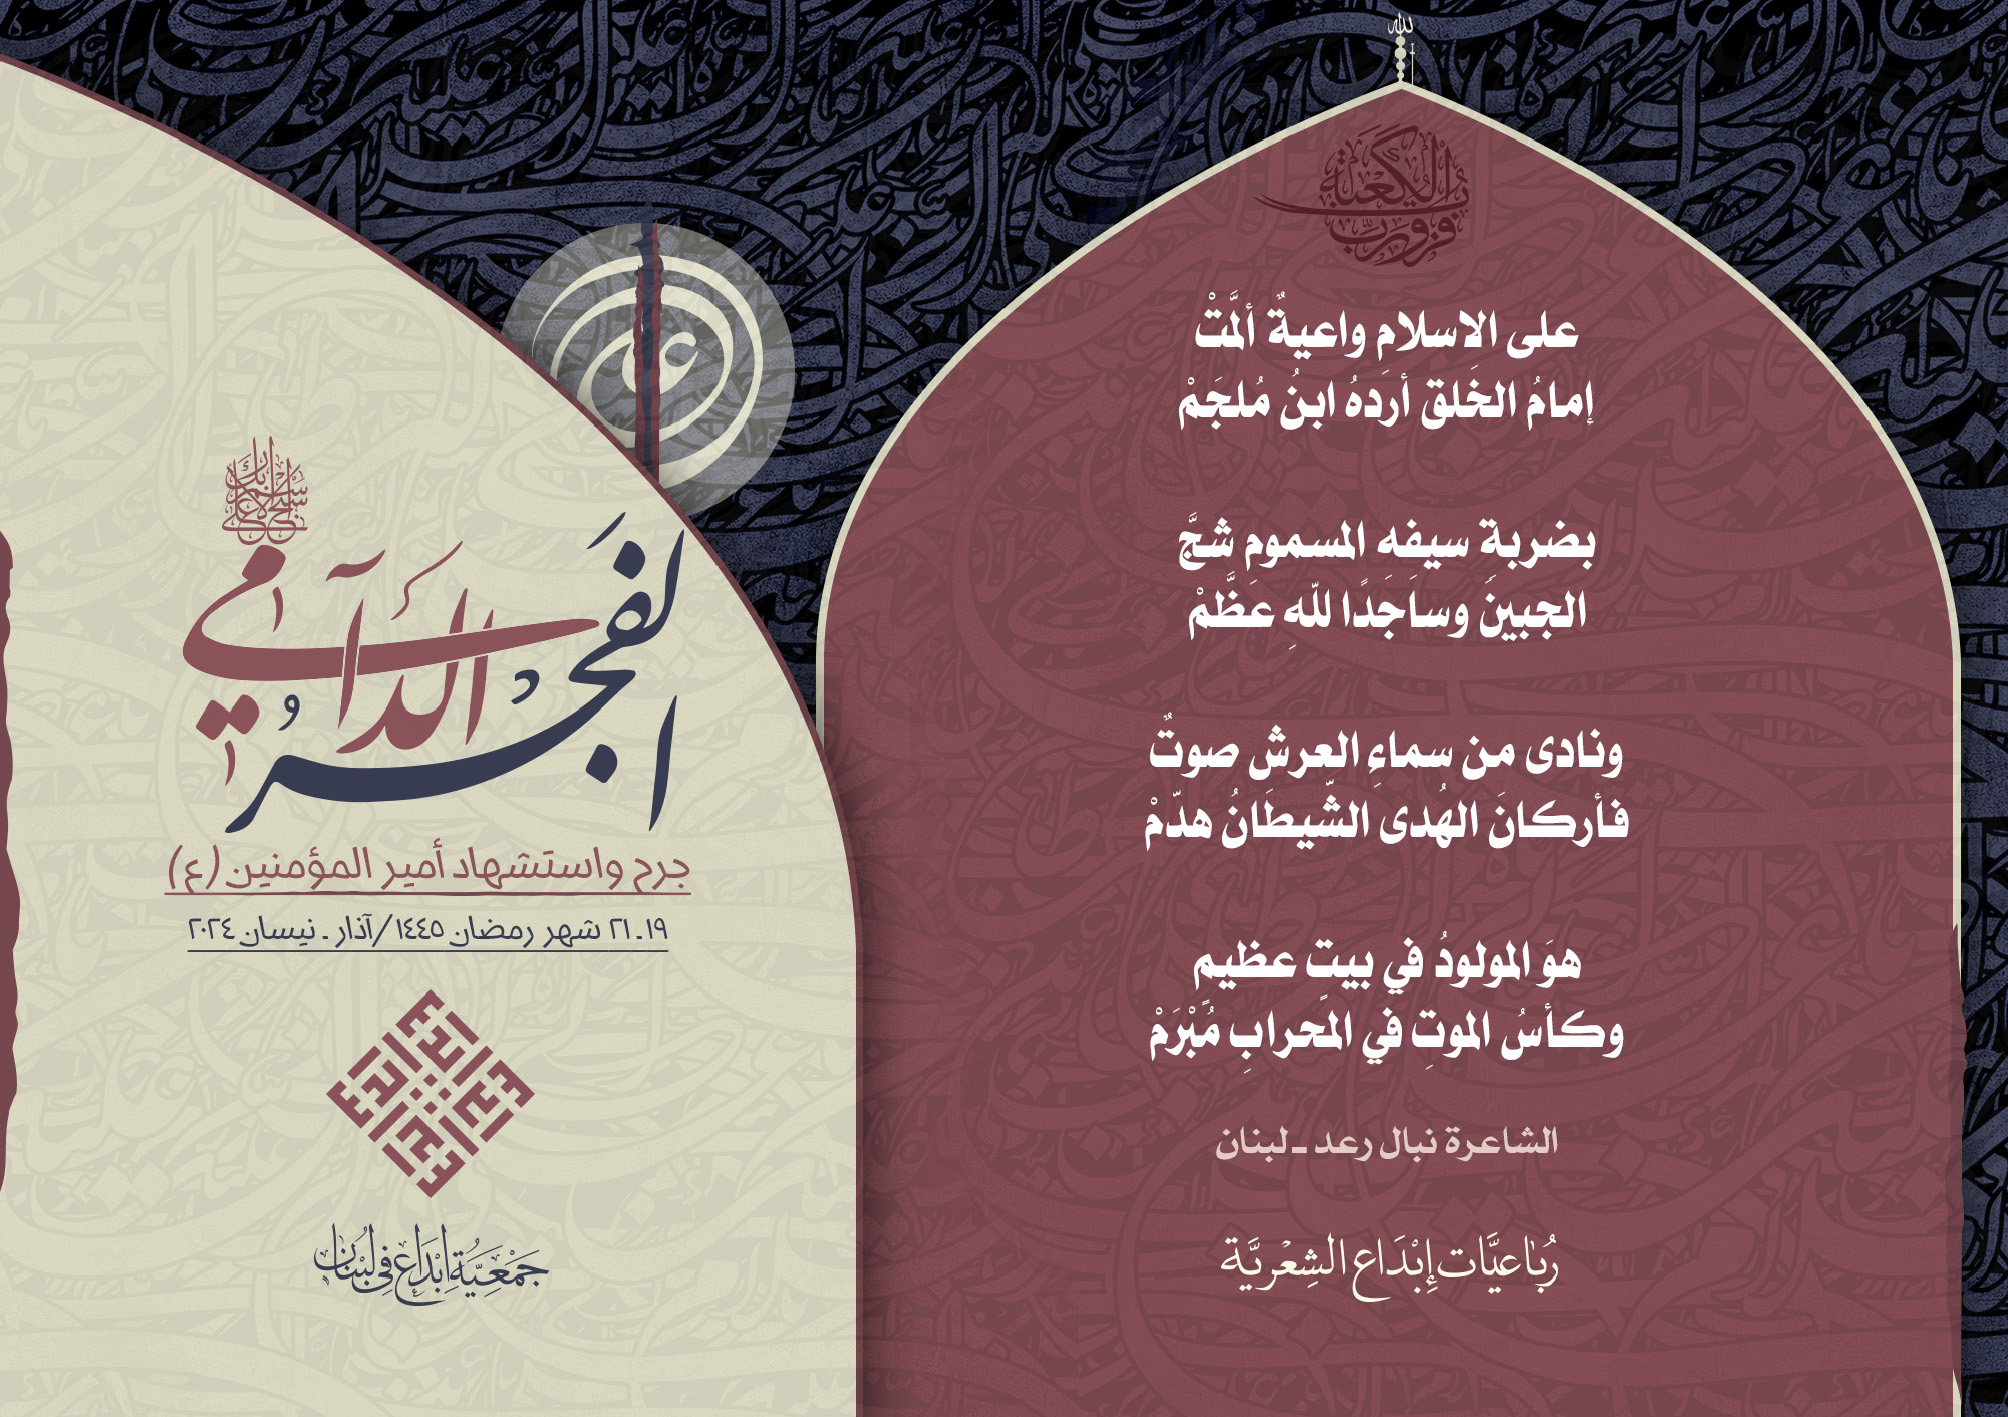 الله
فزت ورب الكعبة
على الإسلامِ واعيةٌ ألمَّتْ
إمامُ الخَلق أردهُ ابنُ مُلجَمْ
بضربةِ سيفِه المسموم شجَّ
الجبينَ وساجَدًا للّهِ عَظَّمْ
ونادى من سماءِ العرشِ صوتٌ
فأركانَ الهُدى الشّيطَانُ هدّمْ
هوَ المولودُ في بيتٍ عظيم
وكأسُ الموتِ في المحرابِ مُبْرَمْ
الشاعرة نبال رعد ـ لبنان
رُبَاعيَّات إِبْدَاع الشِعْريَّة
علي
سبح اسم ربك الأعلى
الفَجرُ الدَّامي
جرح واستشهاد أمير المؤمنين (ع)
١٩ـ ٢١ شهر رمضان ١٤٤٥/آذار ـ نيسان ٢٠٢٤
جَمْعِيَّةُ إِبْدَاع فِي لُبْنَان